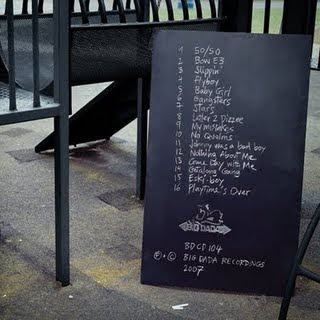 1 50/50
2 Bow E3
3 Slippin'
4 Flyboy
5 Baby Girl
6 Gangsters
7 Stars
8 Letter 2 Dizzee
9 My mistakes
10 No Qualms
11 Johnny was a bad boy
12 Nothing About Me
13 Come Day with Me
14 Getalong Gang
15 Eski-boy
16 Playtime's Over
BIG DADA
BDCD104
℗ + © BIG DADA RECORDINGS
2007